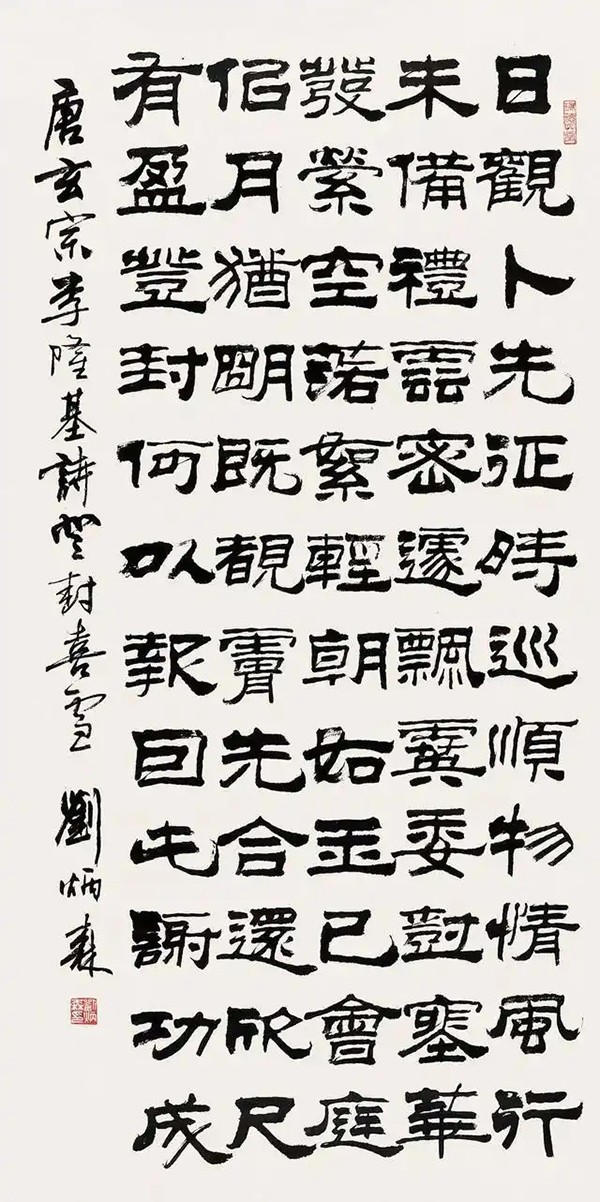 日觀卜先征時巡順物情風行
未備禮雲密遽飄霙委尌寒華
發縈空落絮輕朝如玉已會庭
佀月猶朙既覩膚先合還欣尺
有盈登封何以報因此謝功成
唐玄宗李隆基詩登封喜雪 劉炳森